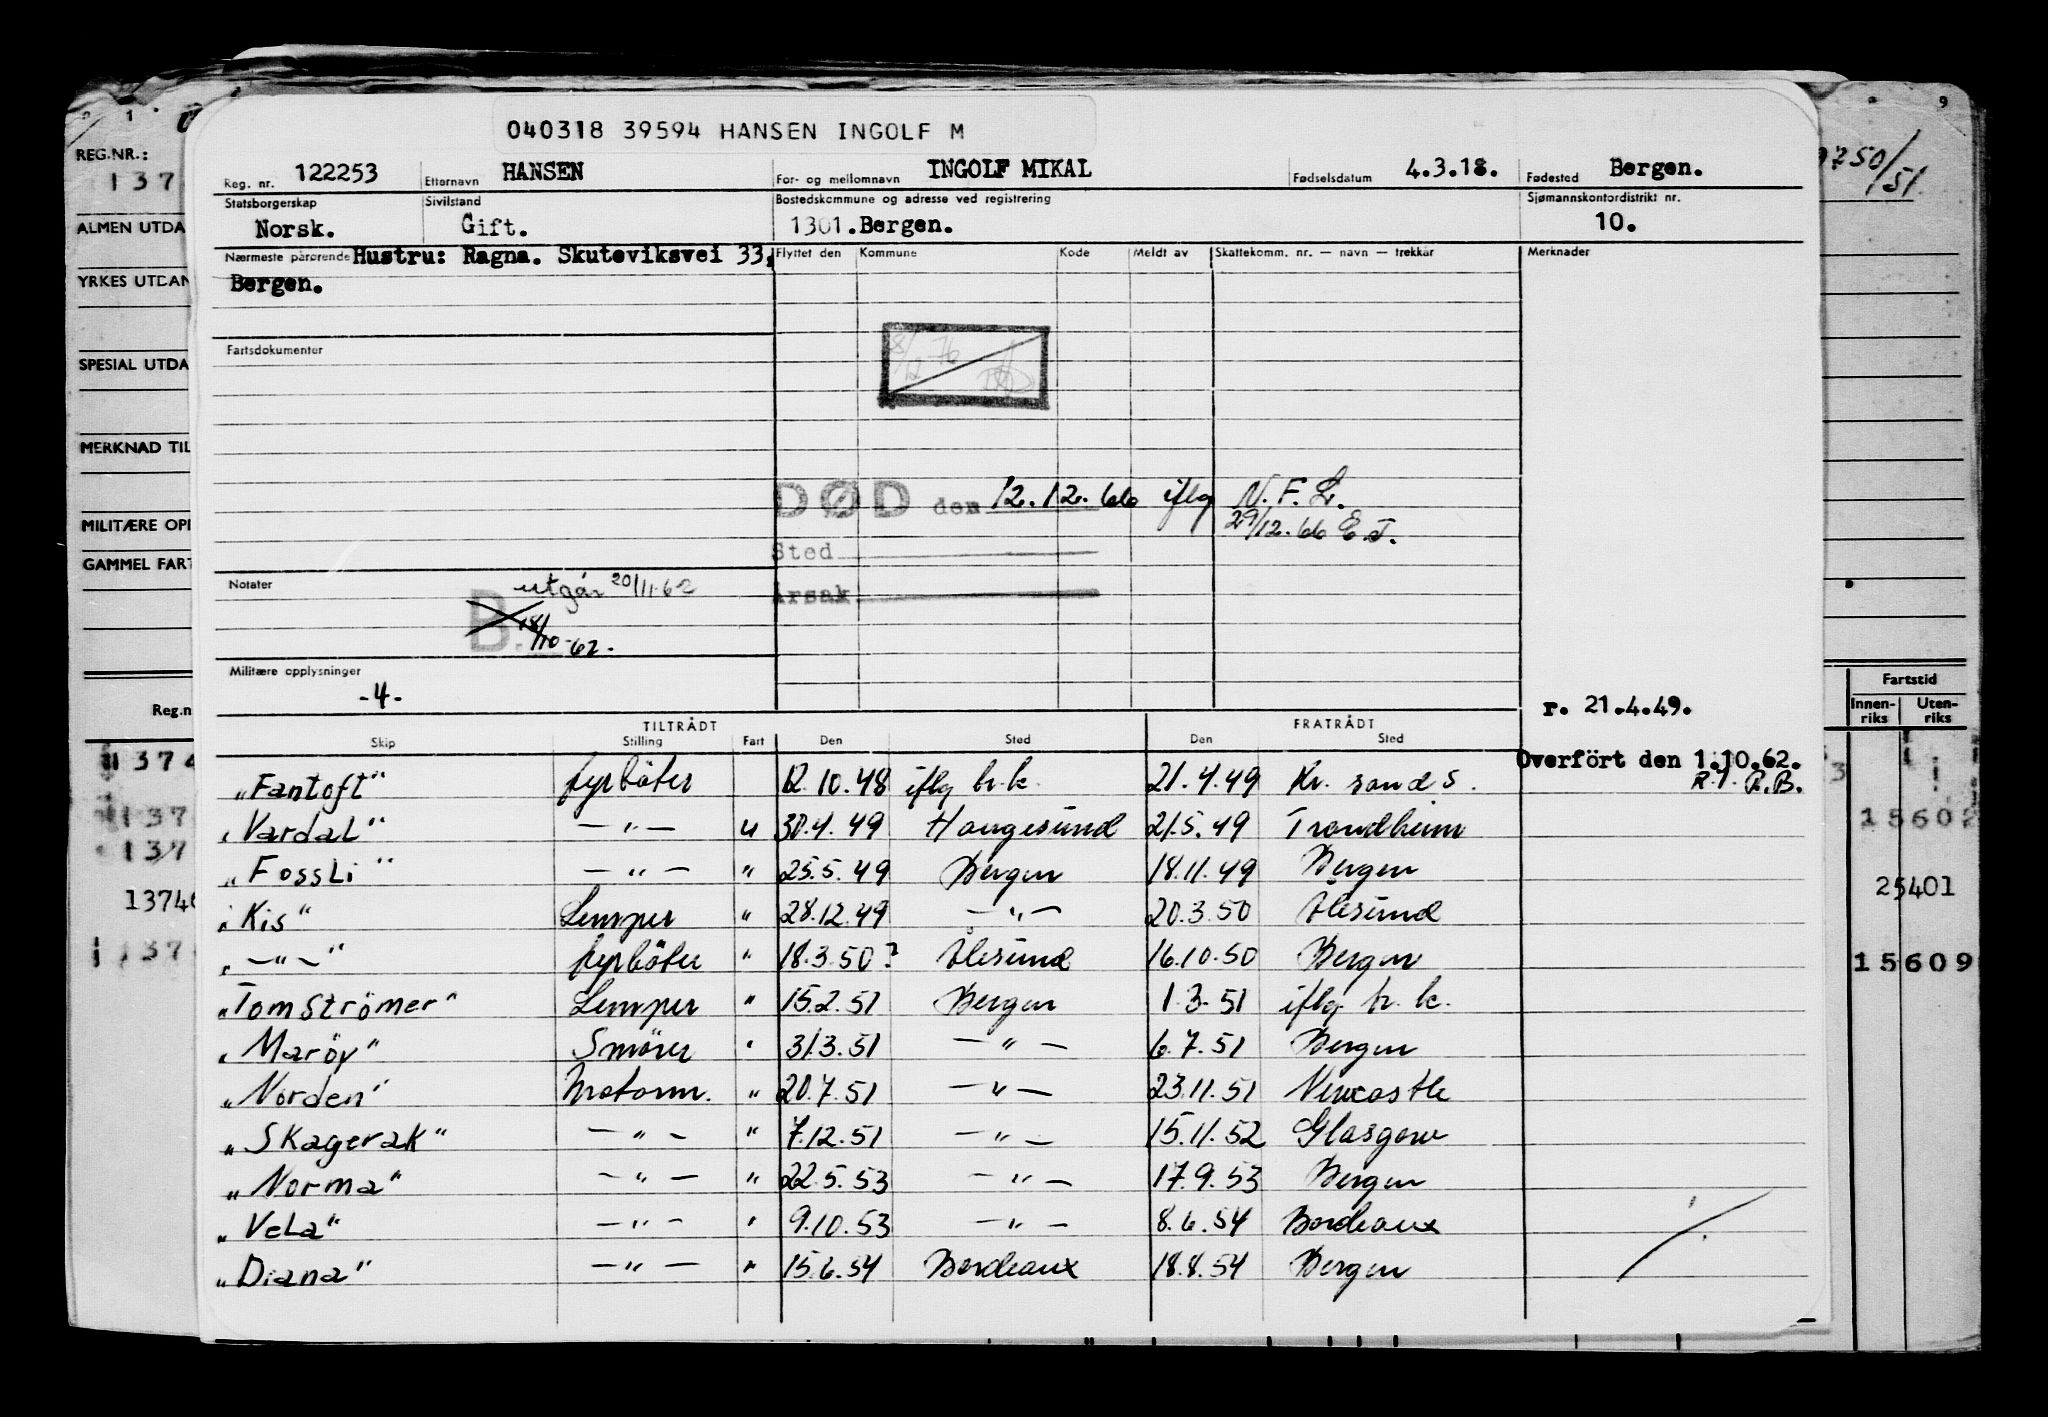 040318 39594 HANSEN INGOLF M
Reg. nr. 122253 Etternavn HANSEN For- og mellomnavn INGOLF MIKAL Fødselsdatum 4.3.18. Fødested Bergen.
Statsborgerskap Norsk. Sivilstand Gift. Bostedskommune og adresse ved registrering 1301.Bergen. Sjømannskontordistrikt nr. 10.
Nærmeste pårørende Hustru: Ragna. Skuteviksvei 33, Flyttet den Kommune Kode Meldt av Skattekomm. nr. — navn — trekkår Merknader
Bergen.
Fartsdokumenter
DØD den 12.12.66 iflg N.F.L.
29/12.66 E.J.
Sted
Årsak
Notater
utgår 20/11-62
B. 18/10-62.
Militære opplysninger
-4-
r. 21.4.49.
TILTRÅDT FRATRÅDT
Skip Stilling Fart Den Sted Den Sted
Overført den 1.10.62.
R.T. R.B.
"Fantoft" fyrböter 12.10.48 iflg h.k. 21.4.49 Kr. sand S.
"Vardal" —"— u 30.4.49 Haugesund 21.5.49 Trondheim
"Fossli" —"— " 25.5.49 Bergen 18.11.49 Bergen
"Kis" Lemper " 28.12.49 —"— 20.3.50 Ålesund
"—"—" fyrböter " 18.3.50? Ålesund 16.10.50 Bergen
"Tom Strömer" Lemper " 15.2.51 Bergen 1.3.51 iflg h.k.
"Maröy" Smörer " 31.3.51 —"— 6.7.51 Bergen
"Norden" Motorm. " 20.7.51 —"— 23.11.51 Newcastle
"Skagerak" —"— " 7.12.51 —"— 15.11.52 Glasgow
"Norma" —"— " 22.5.53 —"— 17.9.53 Bergen
"Vela" —"— " 9.10.53 —"— 8.6.54 Bordeaux
"Diana" —"— " 15.6.54 Bordeaux 18.8.54 Bergen
REG.NR.:
137
ALMEN UTDA
YRKES UTDAN
SPESIAL UTDA
MERKNAD TIL
MILITÆRE OPP
GAMMEL FART
Reg.n
1374
137
137
13746
137
9
750/51
Fartstid
Innen-riks Uten-riks
15602
25401
15609